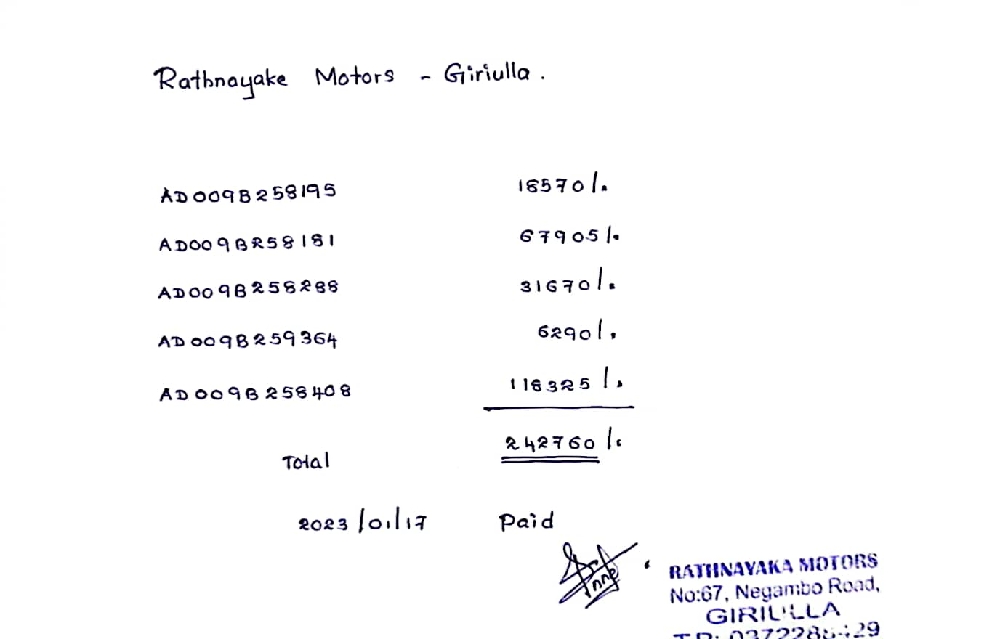 Rathnayake Motors - Giriulla.
AD009B258195 18570/.
AD009B258181 67905/.
AD009B258288 31670/.
AD009B259364 6290/.
AD009B258408 118325/.
Total 242760/.
2023/01/17 Paid
RATHNAYAKA MOTORS
No:67, Negambo Road,
GIRIULLA